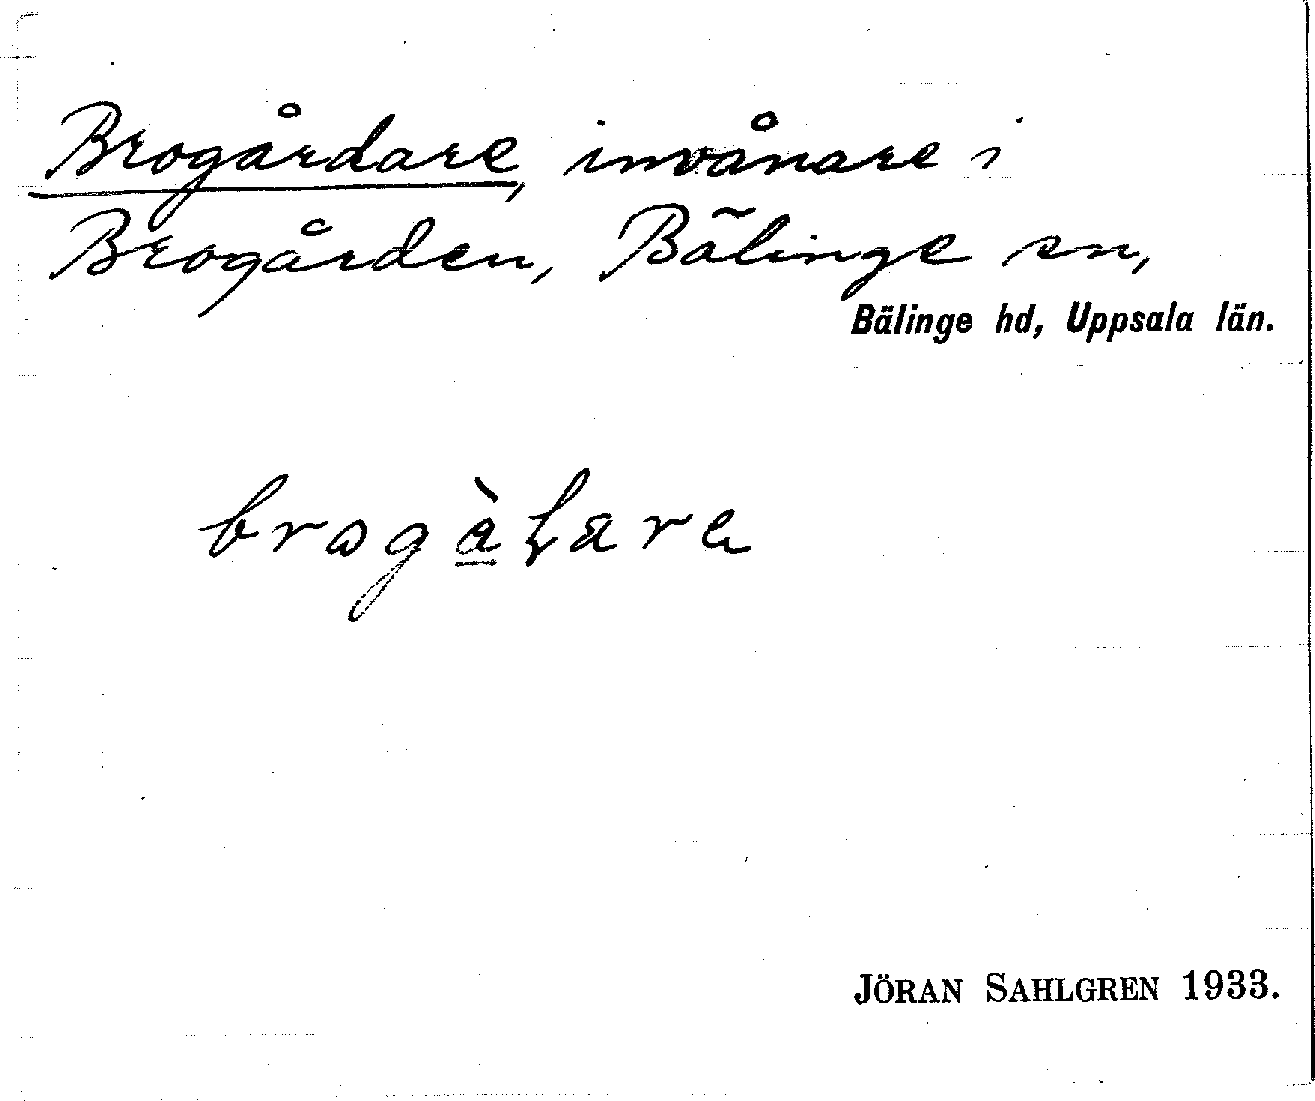 Brogårdare, invånare i
Brogården, Bälinge sn,
Bälinge hd, Uppsala län.
JÖRAN SAHLGREN 1933.